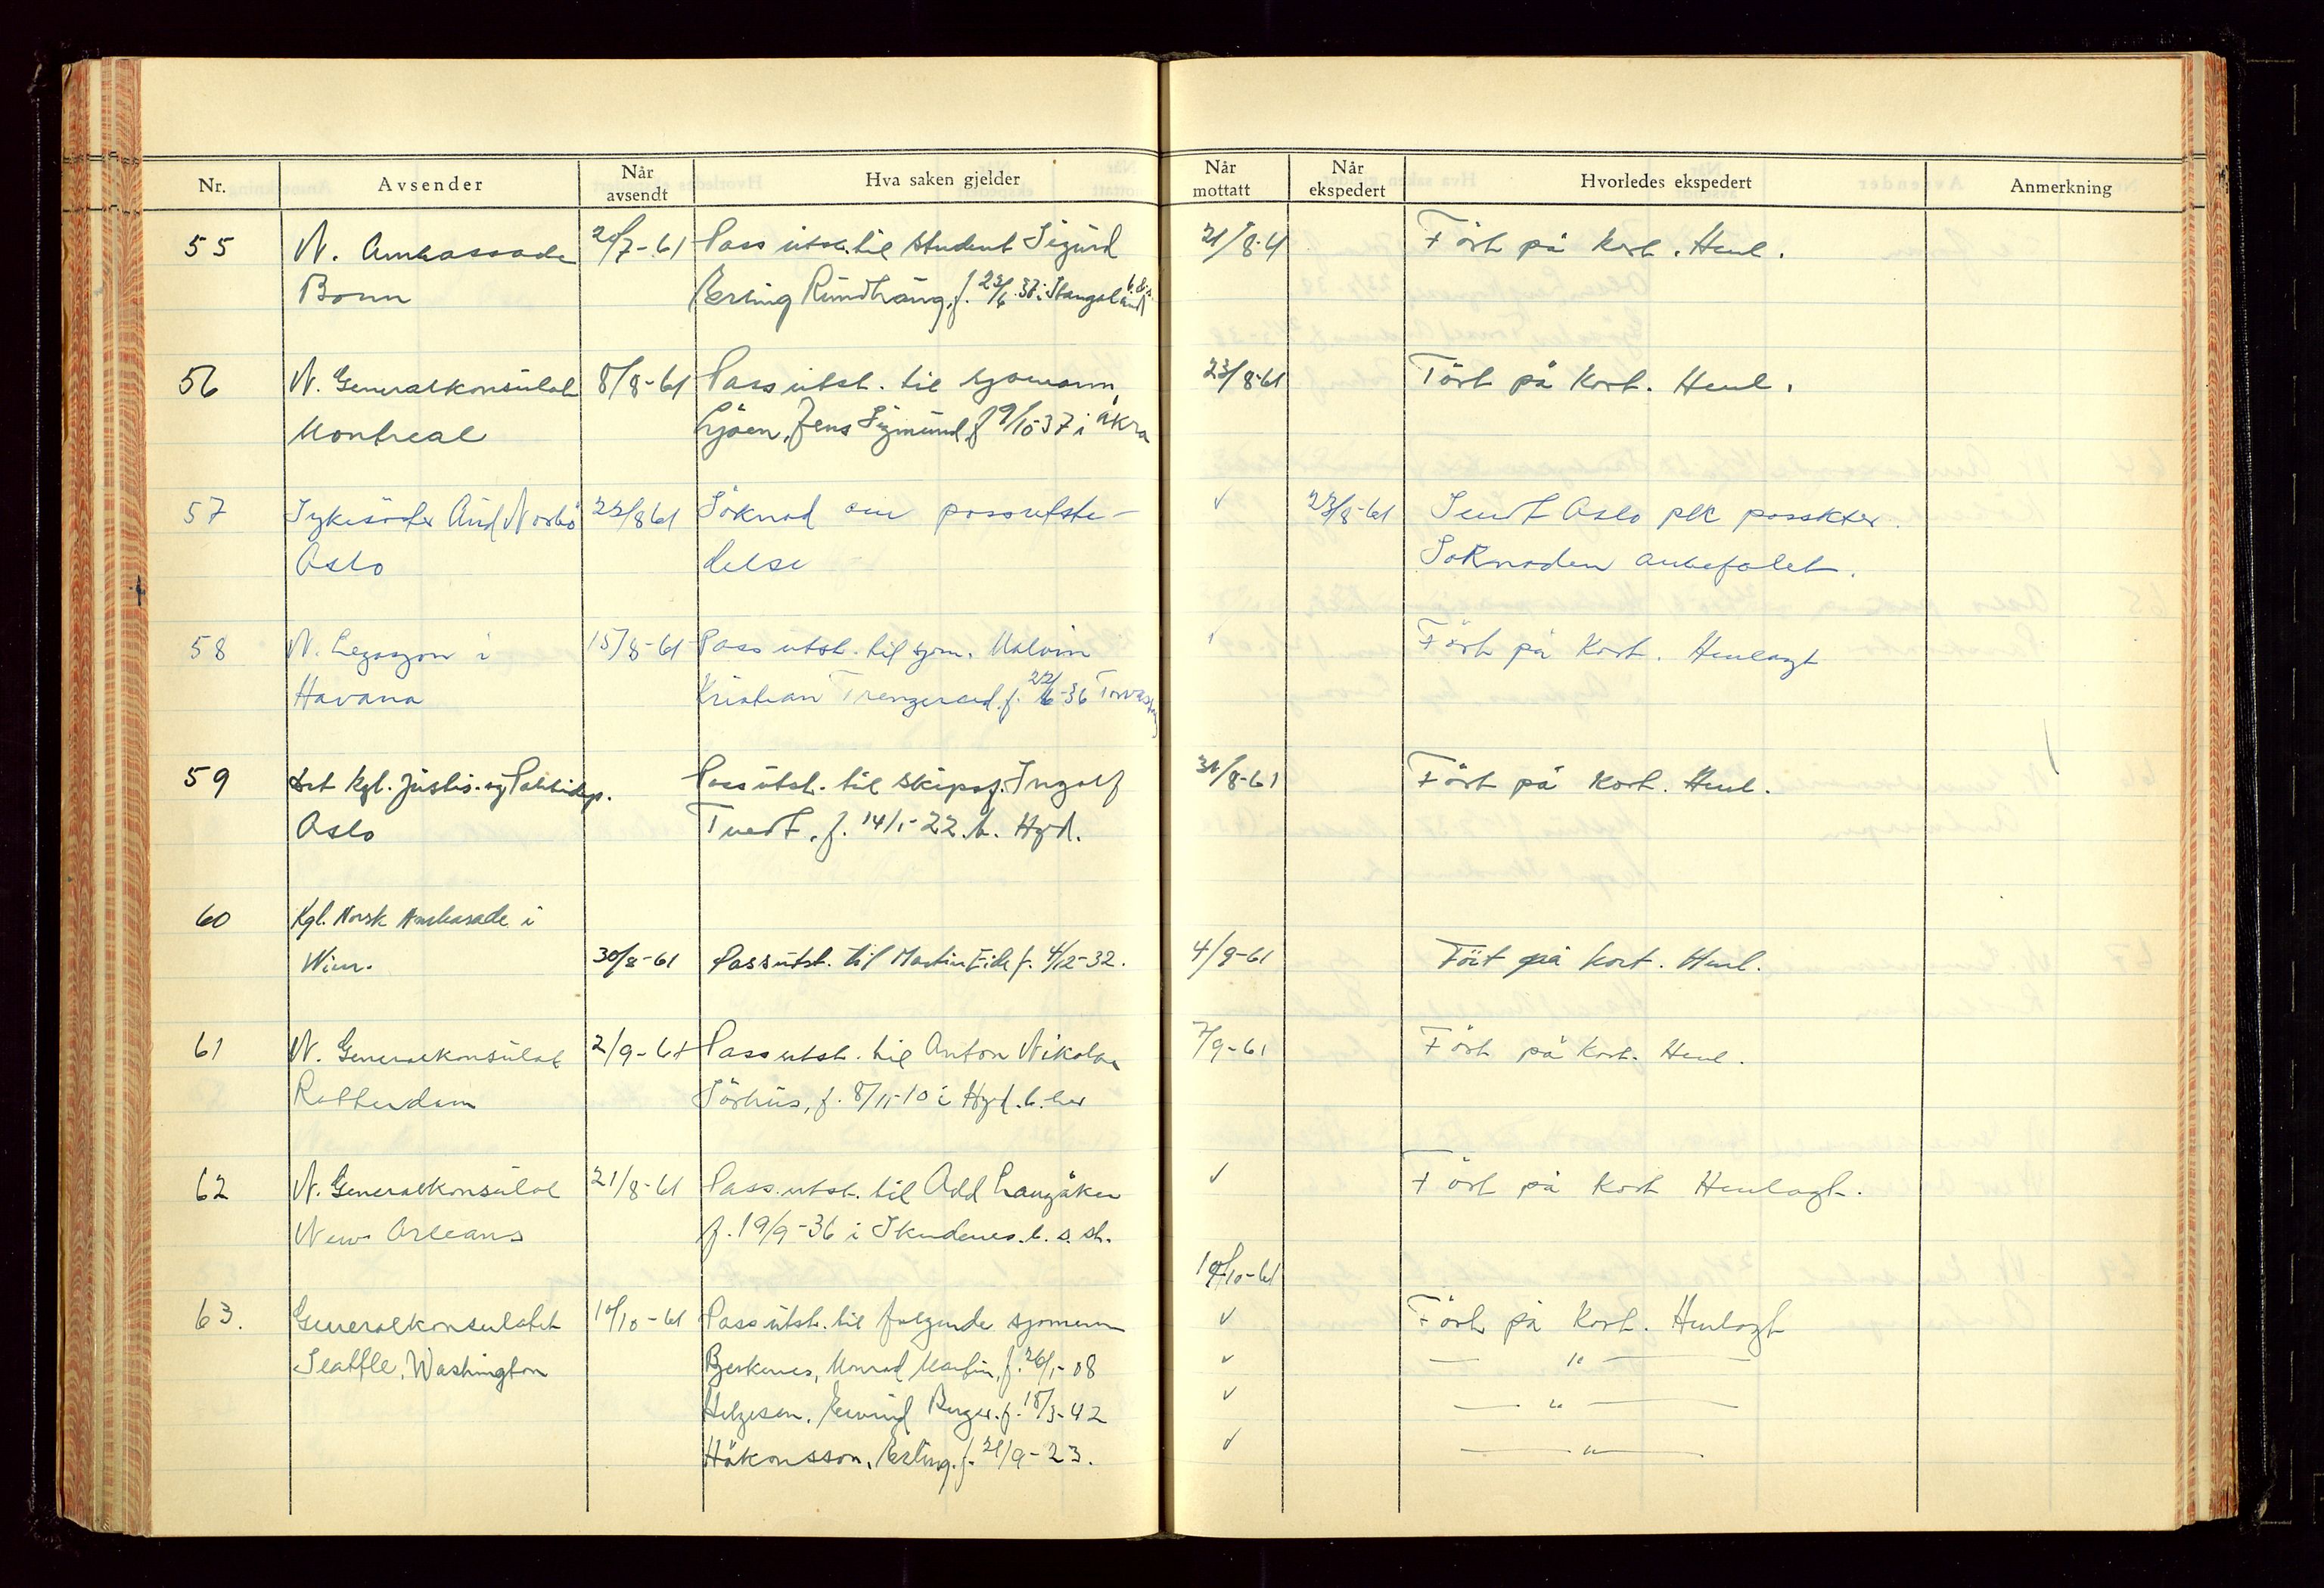 Nr. Avsender Når avsendt Hva saken gjelder Når mottatt Når ekspedert Hvorledes ekspedert Anmerkning
55 N. Ambassade 20/7-61 Pass utst. til student Sigurd 21/8-61 Ført på kort. Henl.
Bonn Erling f. i
56 N. Generalkonsulat 8/8-61 Pass utst. til sjømann 23/8-61 Ført på kort. Henl.
Montreal Jens Sigmund f 9/10-37 i Åkra
57 Aud Norbø 22/8 61 Søknad om passutste- ✓ 23/8-61 Sendt Oslo plk passktr.
Oslo delse Søknaden anbefalet.
58 N. Legasjon i 15/8-61 Pass utst. til sjm. Malvin ✓ Ført på kort. Henlagt
Havana Kristian f. 22/6-36 Torvastad
59 Det kgl. Justis- og Politidep. Pass utst. til skipsf. Ingolf 31/8-61 Ført på kort. Henl.
Oslo Tvedt, f. 14/1-22. b. Hgsd.
60 Kgl. Norsk Ambasade i
Wien. 30/8-61 Pass utst. til Martin Eide f. 4/12-32. 4/9-61 Ført på kort. Henl.
61 N. Generalkonsulat 2/9-61 Pass utst. til Anton Nikolai 7/9-61 Ført på kort. Henl.
Rotterdam Sørhus, f. 8/11-10 i Hgsd. b. her
62 N. Generalkonsulat 21/8-61 Pass utst. til Odd Langåker ✓ Ført på kort Henlagt.
New Orleans f. 19/9-36 i Skudenes. b. s. st.
19/10-61
63. Generalkonsulatet 10/10-61 Pass utst. til følgende sjømenn ✓ Ført på kort. Henlagt
Seattle, Washington Monrad Martin, f. 26/1-08 ✓ — " —
Helgesen, Eivind Berger. f. 18/3-42 ✓ — " —
Håkonsson, Erling. f. 21/9-23. ✓ — " —